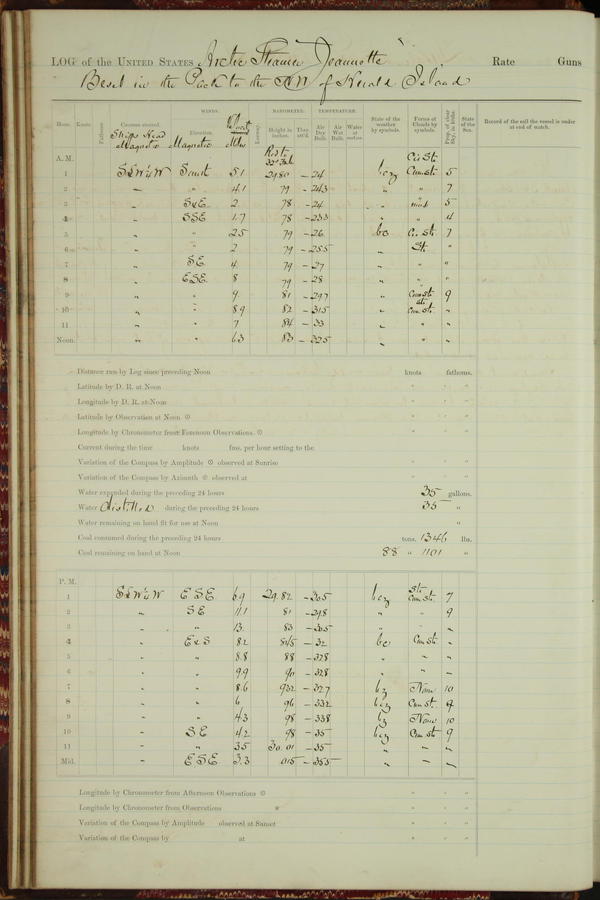 LOG of the UNITED STATES Arctic Steamer "Jeannette" Rate Guns
Beset in the Pack to the NW of Herald Island
Hour. Knots. Fathoms. Courses steered. WINDS. Leeway. BAROMETER. TEMPERATURE. State of the weather by symbols. Forms of Clouds by symbols. Prop. of clear Sky, in 10ths. State of the Sea. Record of the sail the vessel is under at end of watch.
Direction. Height in inches. Ther. att'd. Air Dry Bulb. Air Wet Bulb. Water at surface.
Ships Head Magnetic Magnetic
A. M. Cir St.
1 SSW¼W South 5.1 29.80 -24 bcz Cum St. 5
2 " " 4.1 79 -24.3 " " 7
3 " S x E 2 78 -24 " " 5
4 " SSE 1.7 78 -23.3 " " 4
5 " " 2.5 79 -26 bc Ci. St. 7
6 " " 2 79 -25.5 " St. "
7 " SE 4 79 -27 " " "
8 " ESE 8 79 -28 " " "
9 " " 9 81 -29.7 " Cum St. 9
10 " " 8.9 82 -31.5 " Cum. St. "
11 " " 7 84 -33 " " "
Noon. " " 6.3 83 -32.5 " " "
Distance run by Log since preceding Noon knots fathoms.
Latitude by D. R. at Noon ° ' "
Longitude by D. R. at Noon ° ' "
Latitude by Observation at Noon ☉ ° ' "
Longitude by Chronometer from Forenoon Observations ☉ ° ' "
Current during the time knots fms. per hour setting to the
Variation of the Compass by Amplitude ☉ observed at Sunrise ° ' "
Variation of the Compass by Azimuth ☉ observed at ° ' "
Water expended during the preceding 24 hours 35 gallons.
Water distilled during the preceding 24 hours 35 "
Water remaining on hand fit for use at Noon "
Coal consumed during the preceding 24 hours tons. 1346 lbs.
Coal remaining on hand at Noon 88 " 1101 "
P. M. St.
1 SSW¼W ESE 6.9 29.82 -30.5 bcz Cum St. 7
2 " SE 11.1 81 -29.8 " " 9
3 " " 13. 83 -30.5 " " "
4 " E x S 8.2 84/5 -32 bc Cum St. "
5 " " 8.8 88 -32.8 " " "
6 " " 9.9 90 -32.8 " " "
7 " " 8.6 932 -32.7 bz None 10
8 " " 6 96 -33.2 bcz Cum St. 9
9 " " 4.3 98 -33.8 bz None 10
10 " SE 4.2 98 -35 bcz Cum St 9
11 " " 3.5 30.01 -35 " " "
Mid. " ESE 3.3 015 -35.5 " " "
Longitude by Chronometer from Afternoon Observations ☉ ° ' "
Longitude by Chronometer from Observations * ° ' "
Variation of the Compass by Amplitude observed at Sunset ° ' "
Variation of the Compass by at ° ' "